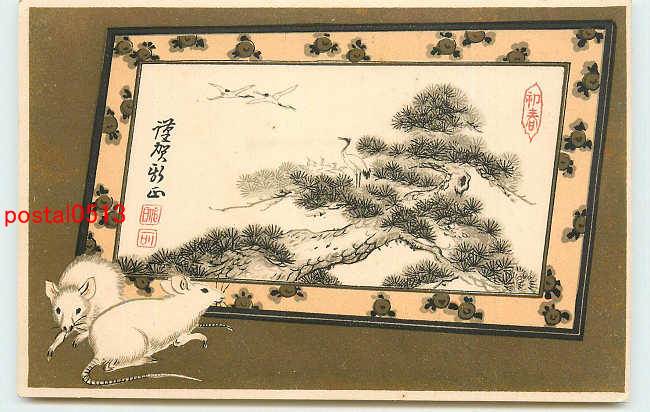 初春
謹賀新正
postal0513